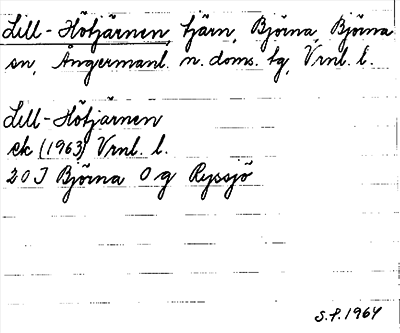 Lill-Hötjärnen, tjärn, Björna, Björna
sn, Ångermanl. n. doms. tg, Vrnl. l.
Lill-Hötjärnen
ek (1963) Vrnl. l.
20 J Björna 0 g Ryssjö
S.P. 1964